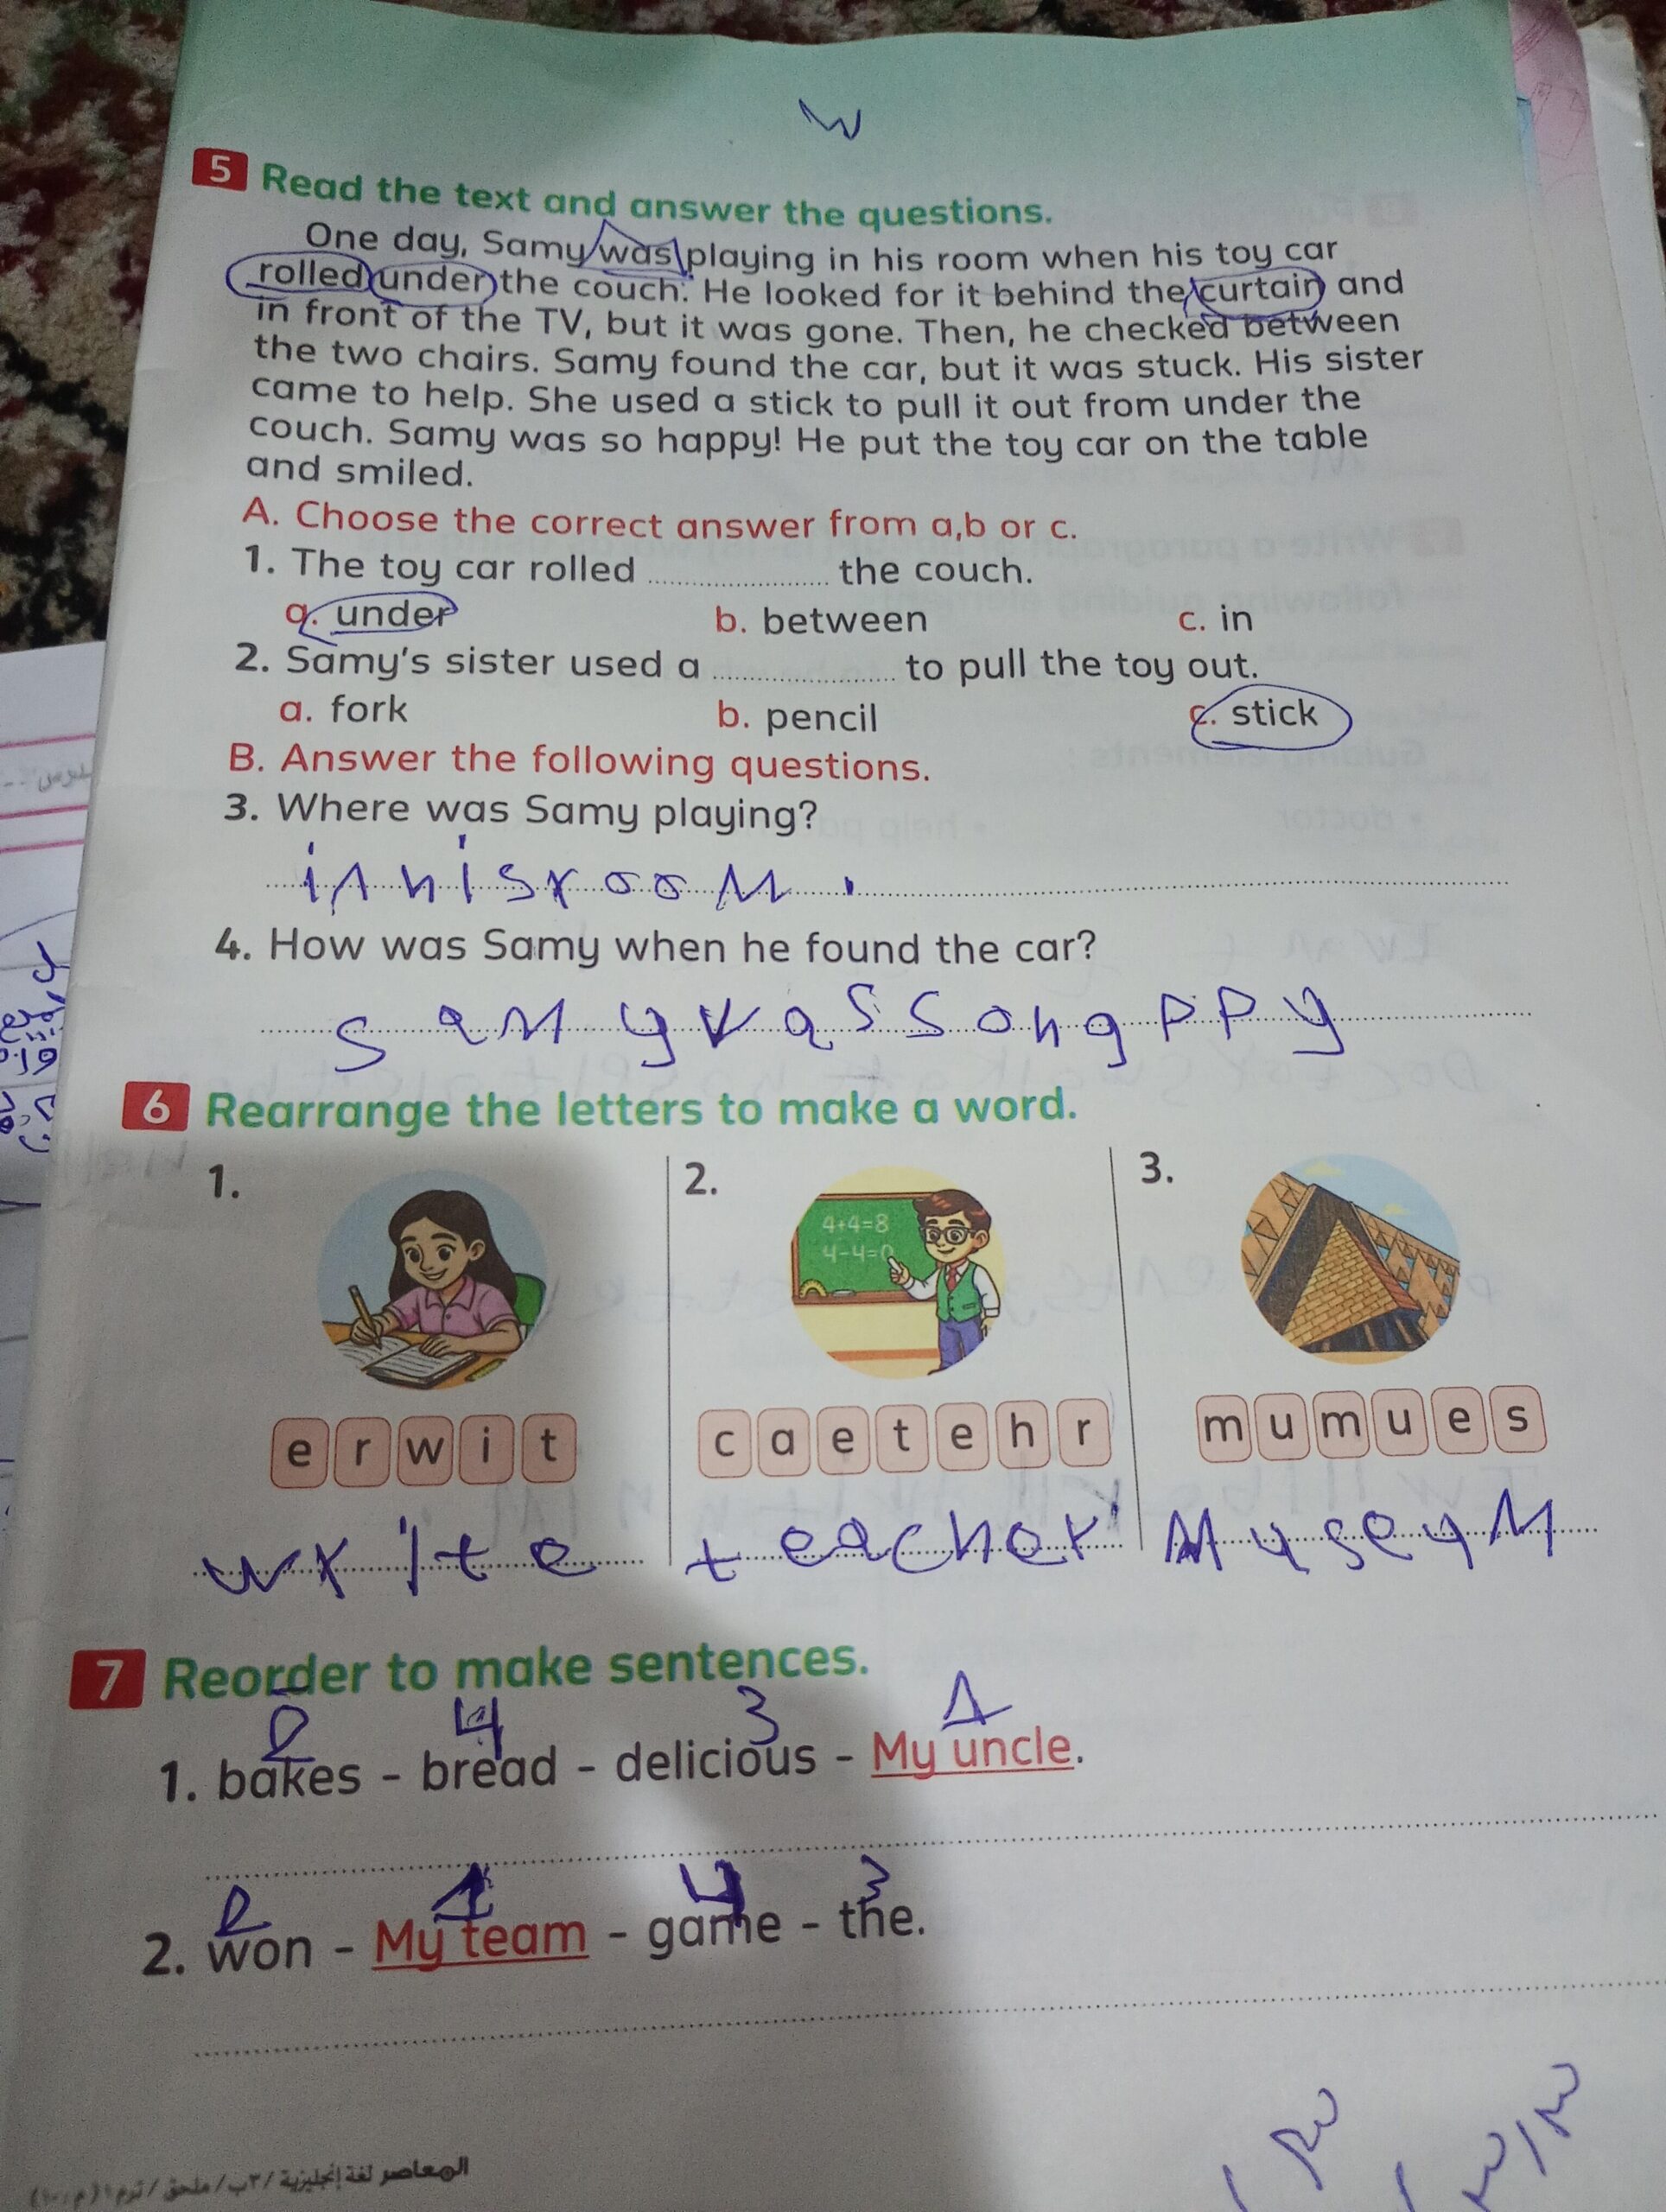 5 Read the text and answer the questions.
One day, Samy was playing in his room when his toy car
rolled under the couch. He looked for it behind the curtain and
in front of the TV, but it was gone. Then, he checked between
the two chairs. Samy found the car, but it was stuck. His sister
came to help. She used a stick to pull it out from under the
couch. Samy was so happy! He put the toy car on the table
and smiled.
A. Choose the correct answer from a,b or c.
1. The toy car rolled .................... the couch.
a. under b. between c. in
2. Samy's sister used a .................... to pull the toy out.
a. fork b. pencil c. stick
B. Answer the following questions.
3. Where was Samy playing?
in his room .
4. How was Samy when he found the car?
samy vas so happy
6 Rearrange the letters to make a word.
1. 2. 3.
4+4=8
4-4=0
e r w i t c a e t e h r m u m u e s
write teacher Museum
7 Reorder to make sentences.
2 4 3 1
1. bakes - bread - delicious - My uncle.
2 1 4 3
2. won - My team - game - the.
المعاصر لغة إنجليزية / ٣ب / ملحق / ترم ١ (م : ١٠)